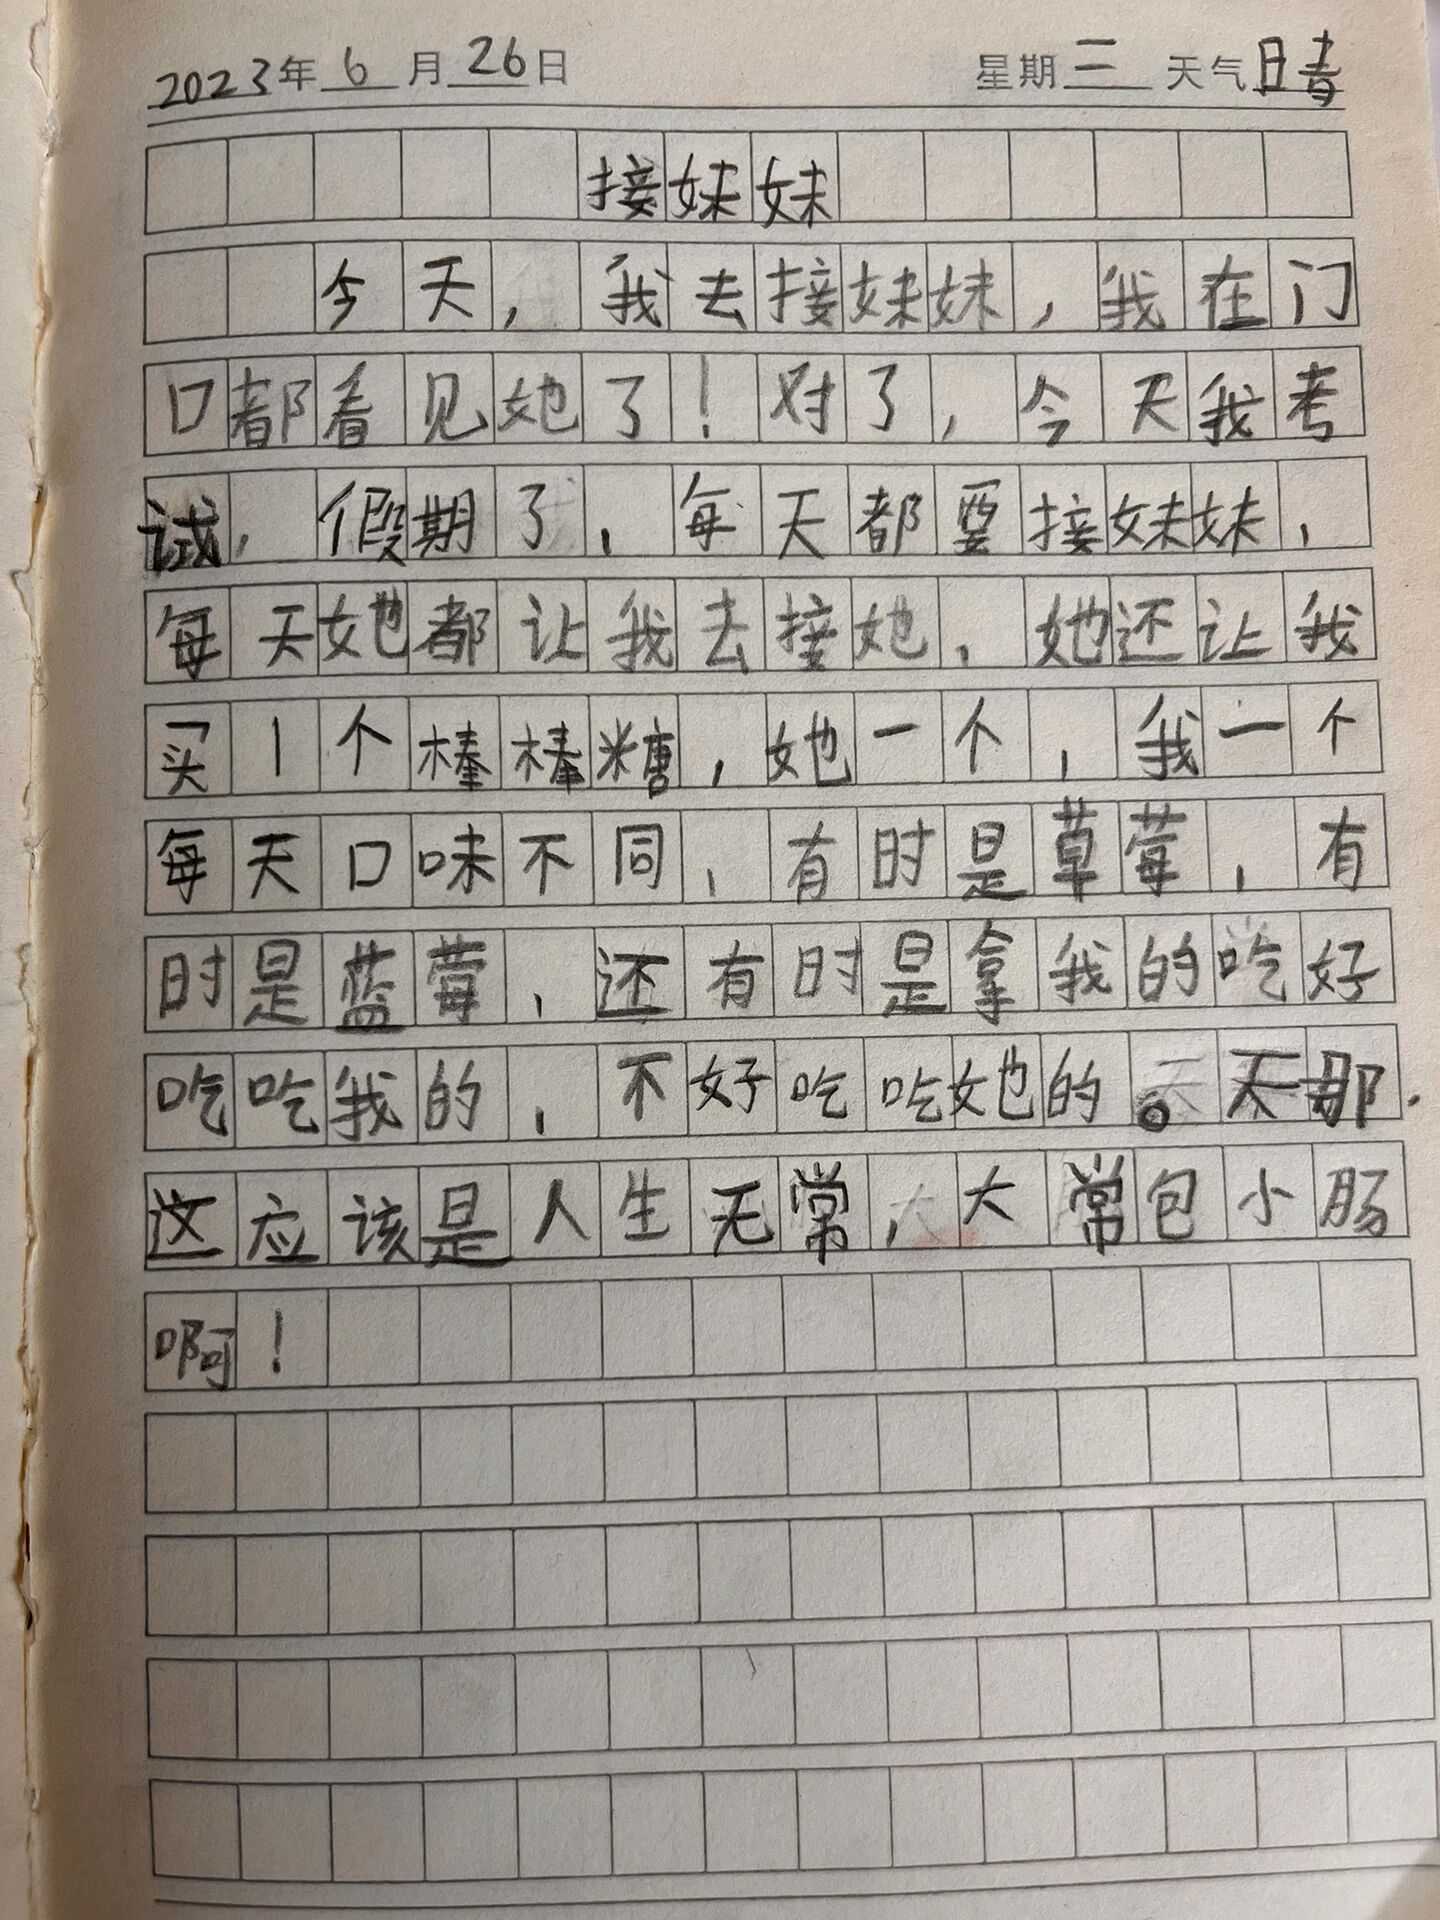 2023年6月26日 星期三 天气晴
接妹妹
今天,我去接妹妹,我在门
口都看见她了!对了,今天我考
试,假期了,每天都要接妹妹,
每天她都让我去接她,她还让我
买1个棒棒糖,她一个,我一个
每天口味不同,有时是草莓,有
时是蓝莓,还有时是拿我的吃好
吃吃我的,不好吃吃她的。天那.
这应该是人生无常,大常包小肠
啊!